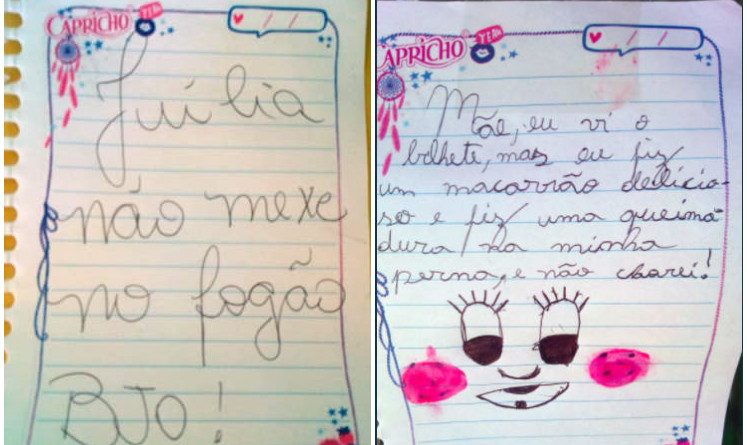 CAPRICHO
YEAH
Júlia
não mexe
no fogão
BJO!
CAPRICHO
YEAH
Mãe, eu vi o
bilhete, mas eu fiz
um macarrão delicio-
so e fiz uma queima-
dura na minha
perna, e não chorei!